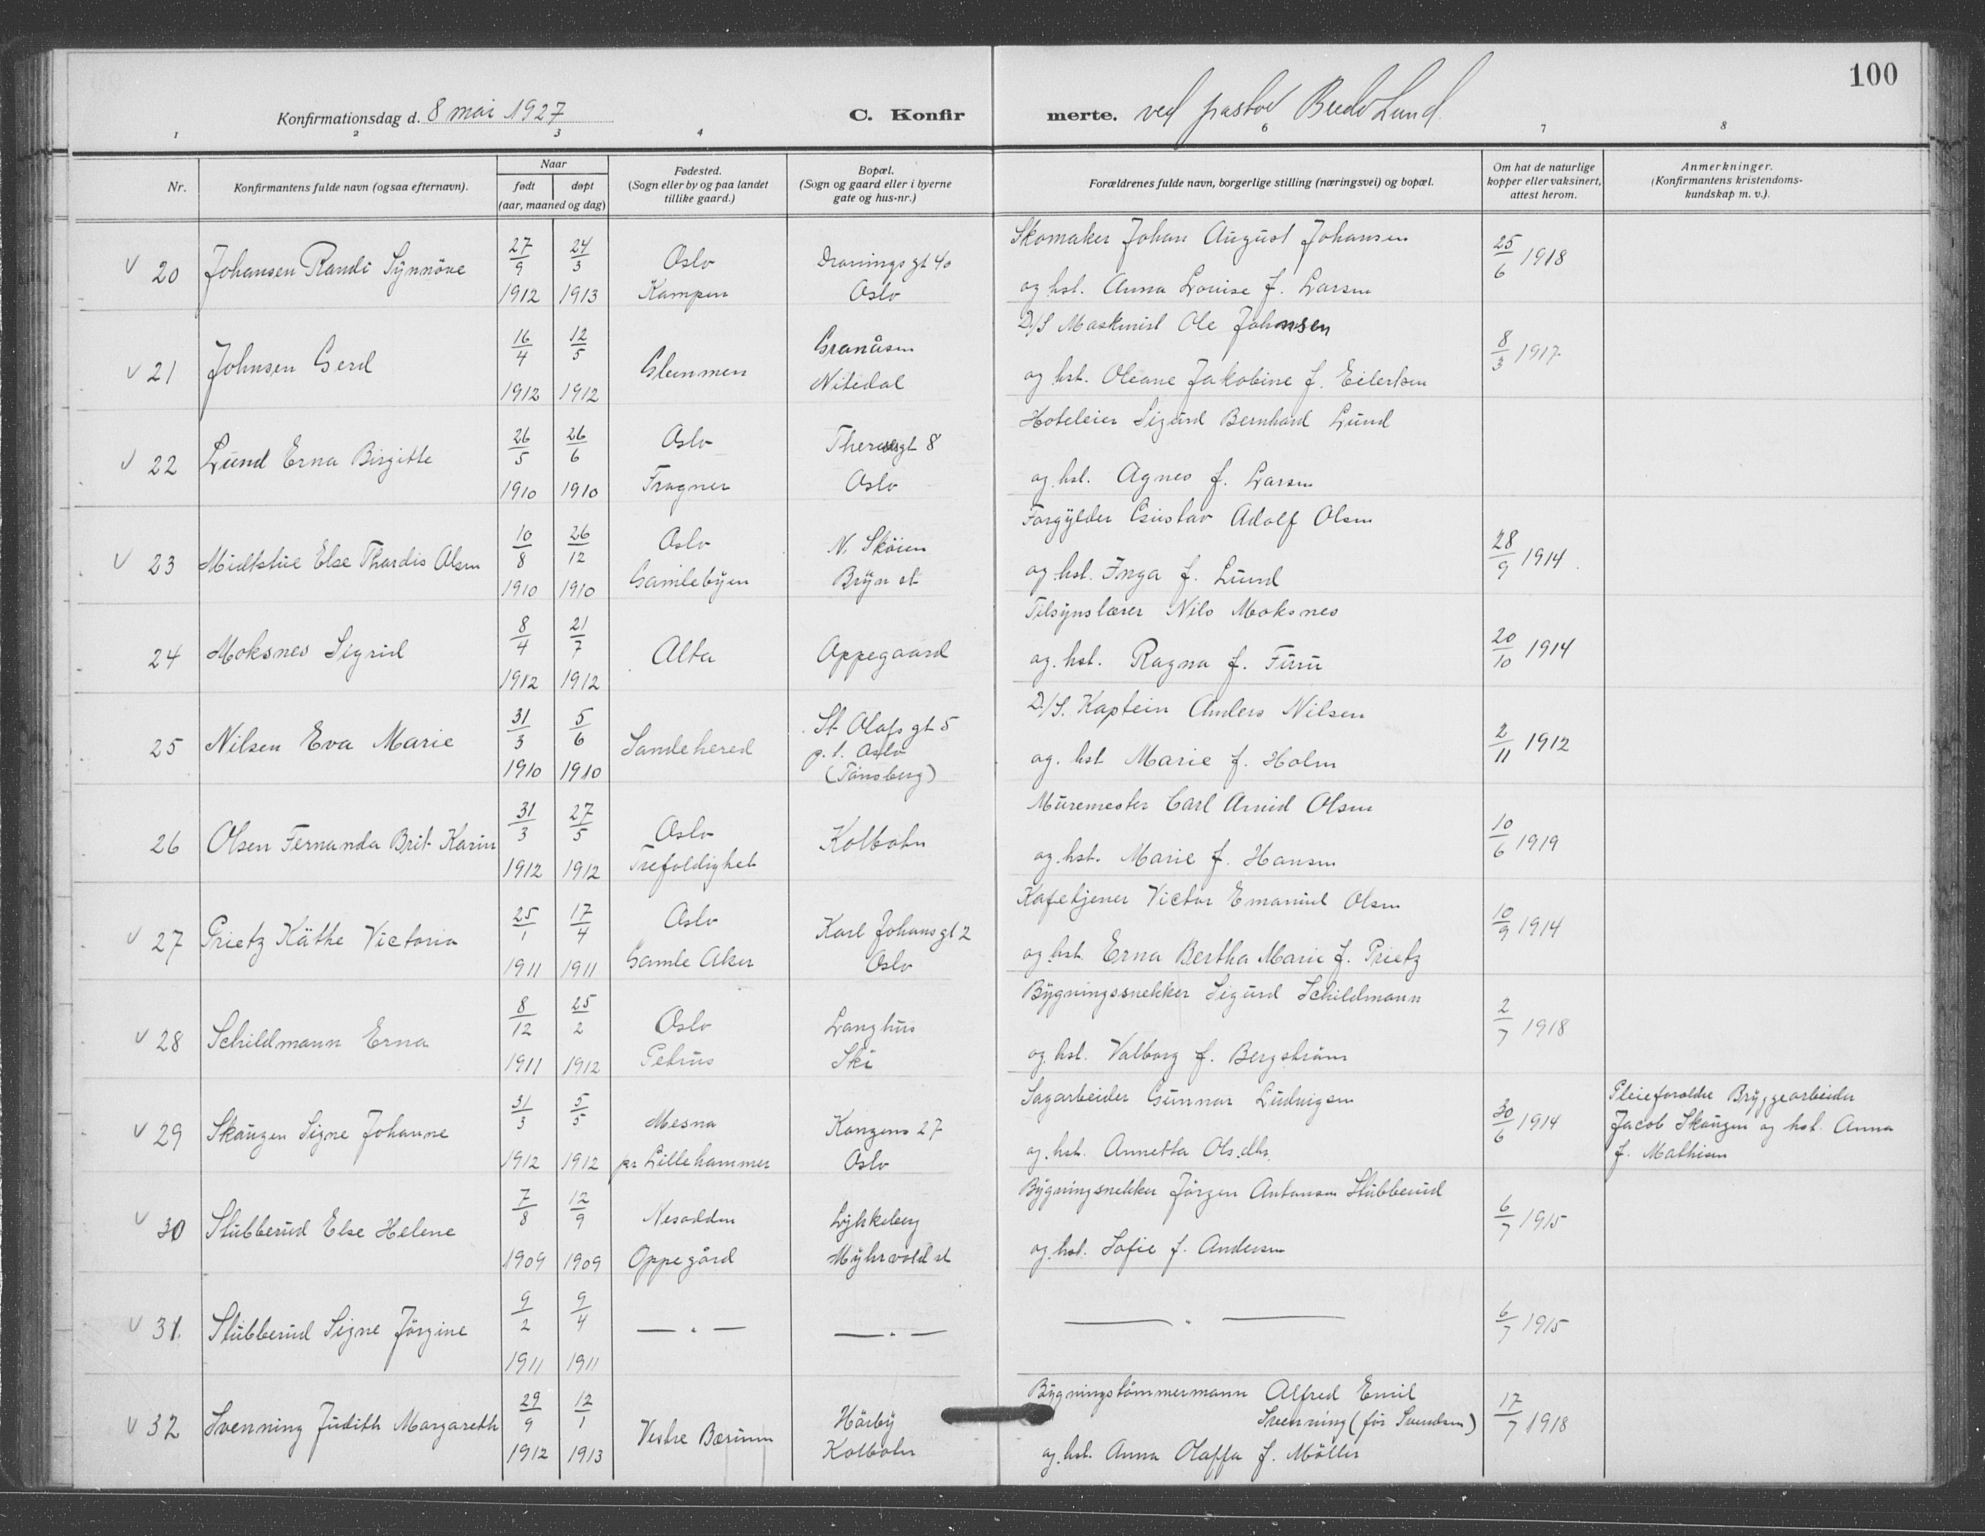 100
Konfirmationsdag d. 8 mai 1927 C. Konfirmerte. ved pastor Bredo Lund
1 2 3 4 6 7 8
Nr. Konfirmantens fulde navn (ogsaa efternavn). Naar født døpt (aar, maaned og dag) Fødested. (Sogn eller by og paa landet tillike gaard.) Bopæl. (Sogn og gaard eller i byerne gate og hus-nr.) Forældrenes fulde navn, borgerlige stilling (næringsvei) og bopæl. Om hat de naturlige kopper eller vaksinert, attest herom. Anmerkninger. (Konfirmantens kristendomskundskap m. v.).
20 Johansen Randi Synnöve 27/9 1912 24/3 1913 Oslo Kampen gt 40 Oslo Skomaker Johan August Johansen og hst. Anna Louise f. Larsen 25/6 1918
21 Johnsen Gerd 16/4 1912 12/5 1912 Glemmen Granåsen Nitedal D/S Maskinist Ole Johnsen og hst. Oleane Jakobine f. Eilertsen 8/3 1917
22 Lund Erna Birgitte 26/5 1910 26/6 1910 Oslo Frogner Theresesgt 8 Oslo Hoteleier Sigurd Bernhard Lund og hst. Agnes f. Larsen
23 Midtstue Else Thordis Olsen 10/8 1910 26/12 1910 Oslo Gamlebyen N. Skøien Bryn st Forgylder Gustav Adolf Olsen og hst. Inga f. Lund 28/9 1914
24 Moksnes Sigrid 8/4 1912 21/7 1912 Alta Oppegaard Tilsynslærer Nils Moksnes og hst. Ragna f. Furu 20/10 1914
25 Nilsen Eva Marie 31/3 1910 5/6 1910 Sandehered St. Olafs gt 5 p.t. Oslo (Tönsberg) D/S. Kaptein Anders Nilsen og hst Marie f. Holm 2/11 1912
26 Olsen Fernanda Brit Karin 31/3 1912 27/5 1912 Oslo Trefoldighet Kolbotn Muremester Carl Arvid Olsen og hst. Marie f. Hansen 10/6 1919
27 Prietz Käthe Victoria 25/1 1911 17/4 1911 Oslo Gamle Aker Karl Johans gt 2 Oslo Kafetjener Victor Emanuel Olsen og hst. Erna Bertha Marie f. Prietz 10/9 1914
28 Schildmann Erna 8/12 1911 25/2 1912 Oslo Petrus Langhus Ski Bygningssnekker Sigurd Schildmann og hst. Valborg f. Bergström 2/7 1918
29 Skaugen Signe Johanne 31/3 1912 5/5 1912 Mesna pr Lillehammer Kongens 27 Oslo Sagarbeider Gunnar Ludvigsen og hst. Annetta Ols.dtr. 30/6 1914 Pleieforældre Bryggearbeider Jacob Skaugen og hst. Anna f. Mathisen
30 Stubberud Else Helene 7/8 1909 12/9 1909 Nesodden Oppegård Lykkeberg Myhrvold st Bygningsnekker Jörgen Antonsen Stubberud og hst. Sofie f. Andersen 6/7 1915
31. Stubberud Signe Jörgine 9/2 1911 9/4 1911 — " — — " — — " — 6/7 1915
32 Svenning Judith Margareth 29/9 1912 12/1 1913 Vestre Bærum Kolbotn Bygningstömmermann Alfred Emil Svenning (før Svendsen) og hst. Anna Olaffa f. Möller 17/7 1918